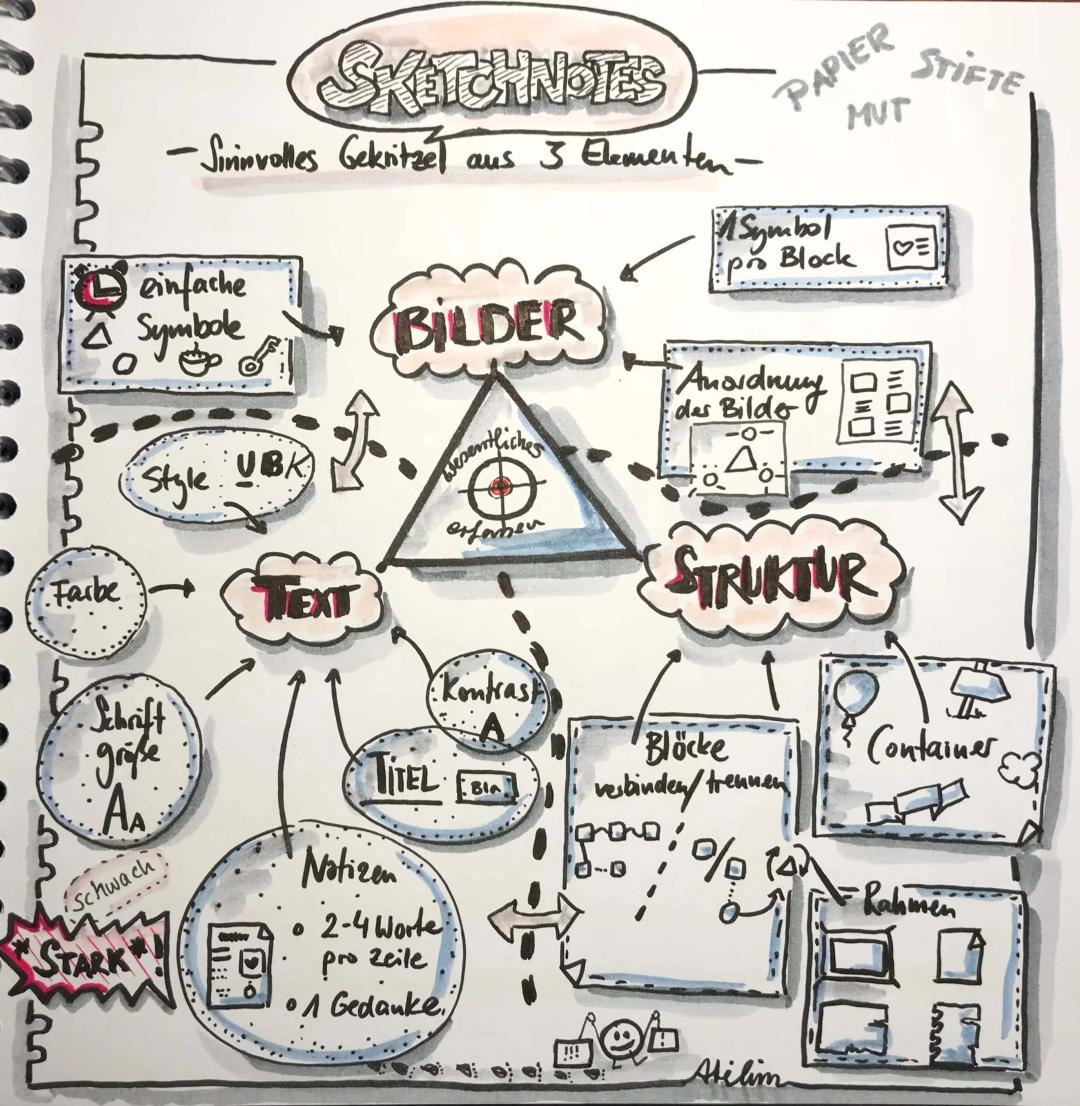 SKETCHNOTES
PAPIER STIFTE
MUT
- Sinnvolles Gekritzel aus 3 Elementen -
1 Symbol
pro Block
einfache
Symbole
BILDER
Anordnung
der Bilder
wesentliches
erfassen
Style UBK
Farbe
TEXT
STRUKTUR
Schrift
größe
AA
Kontrast
A
TITEL Bla
Blöcke
verbinden/trennen
Container
schwach
*STARK*!
Notizen
2-4 Worte
pro Zeile
1 Gedanke
Rahmen